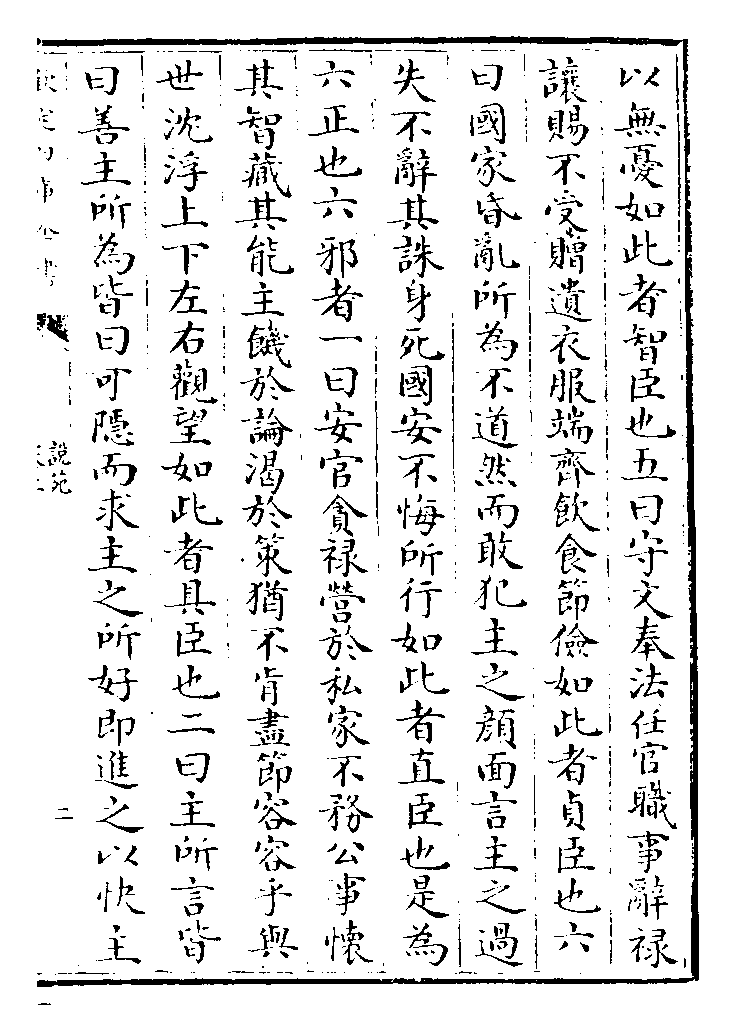 以無憂如此者智臣也五曰守文奉法任官職事辭禄
讓賜不受贈遺衣服端齊飲食節儉如此者貞臣也六
曰國家昏亂所為不道然而敢犯主之顔面言主之過
失不辭其誅身死國安不悔所行如此者直臣也是為
六正也六邪者一曰安官貪禄營於私家不務公事懐
其智藏其能主饑於論渴於策猶不肯盡節容容乎與
世沈浮上下左右觀望如此者具臣也二曰主所言皆
曰善主所為皆曰可隱而求主之所好即進之以快主
說苑
二